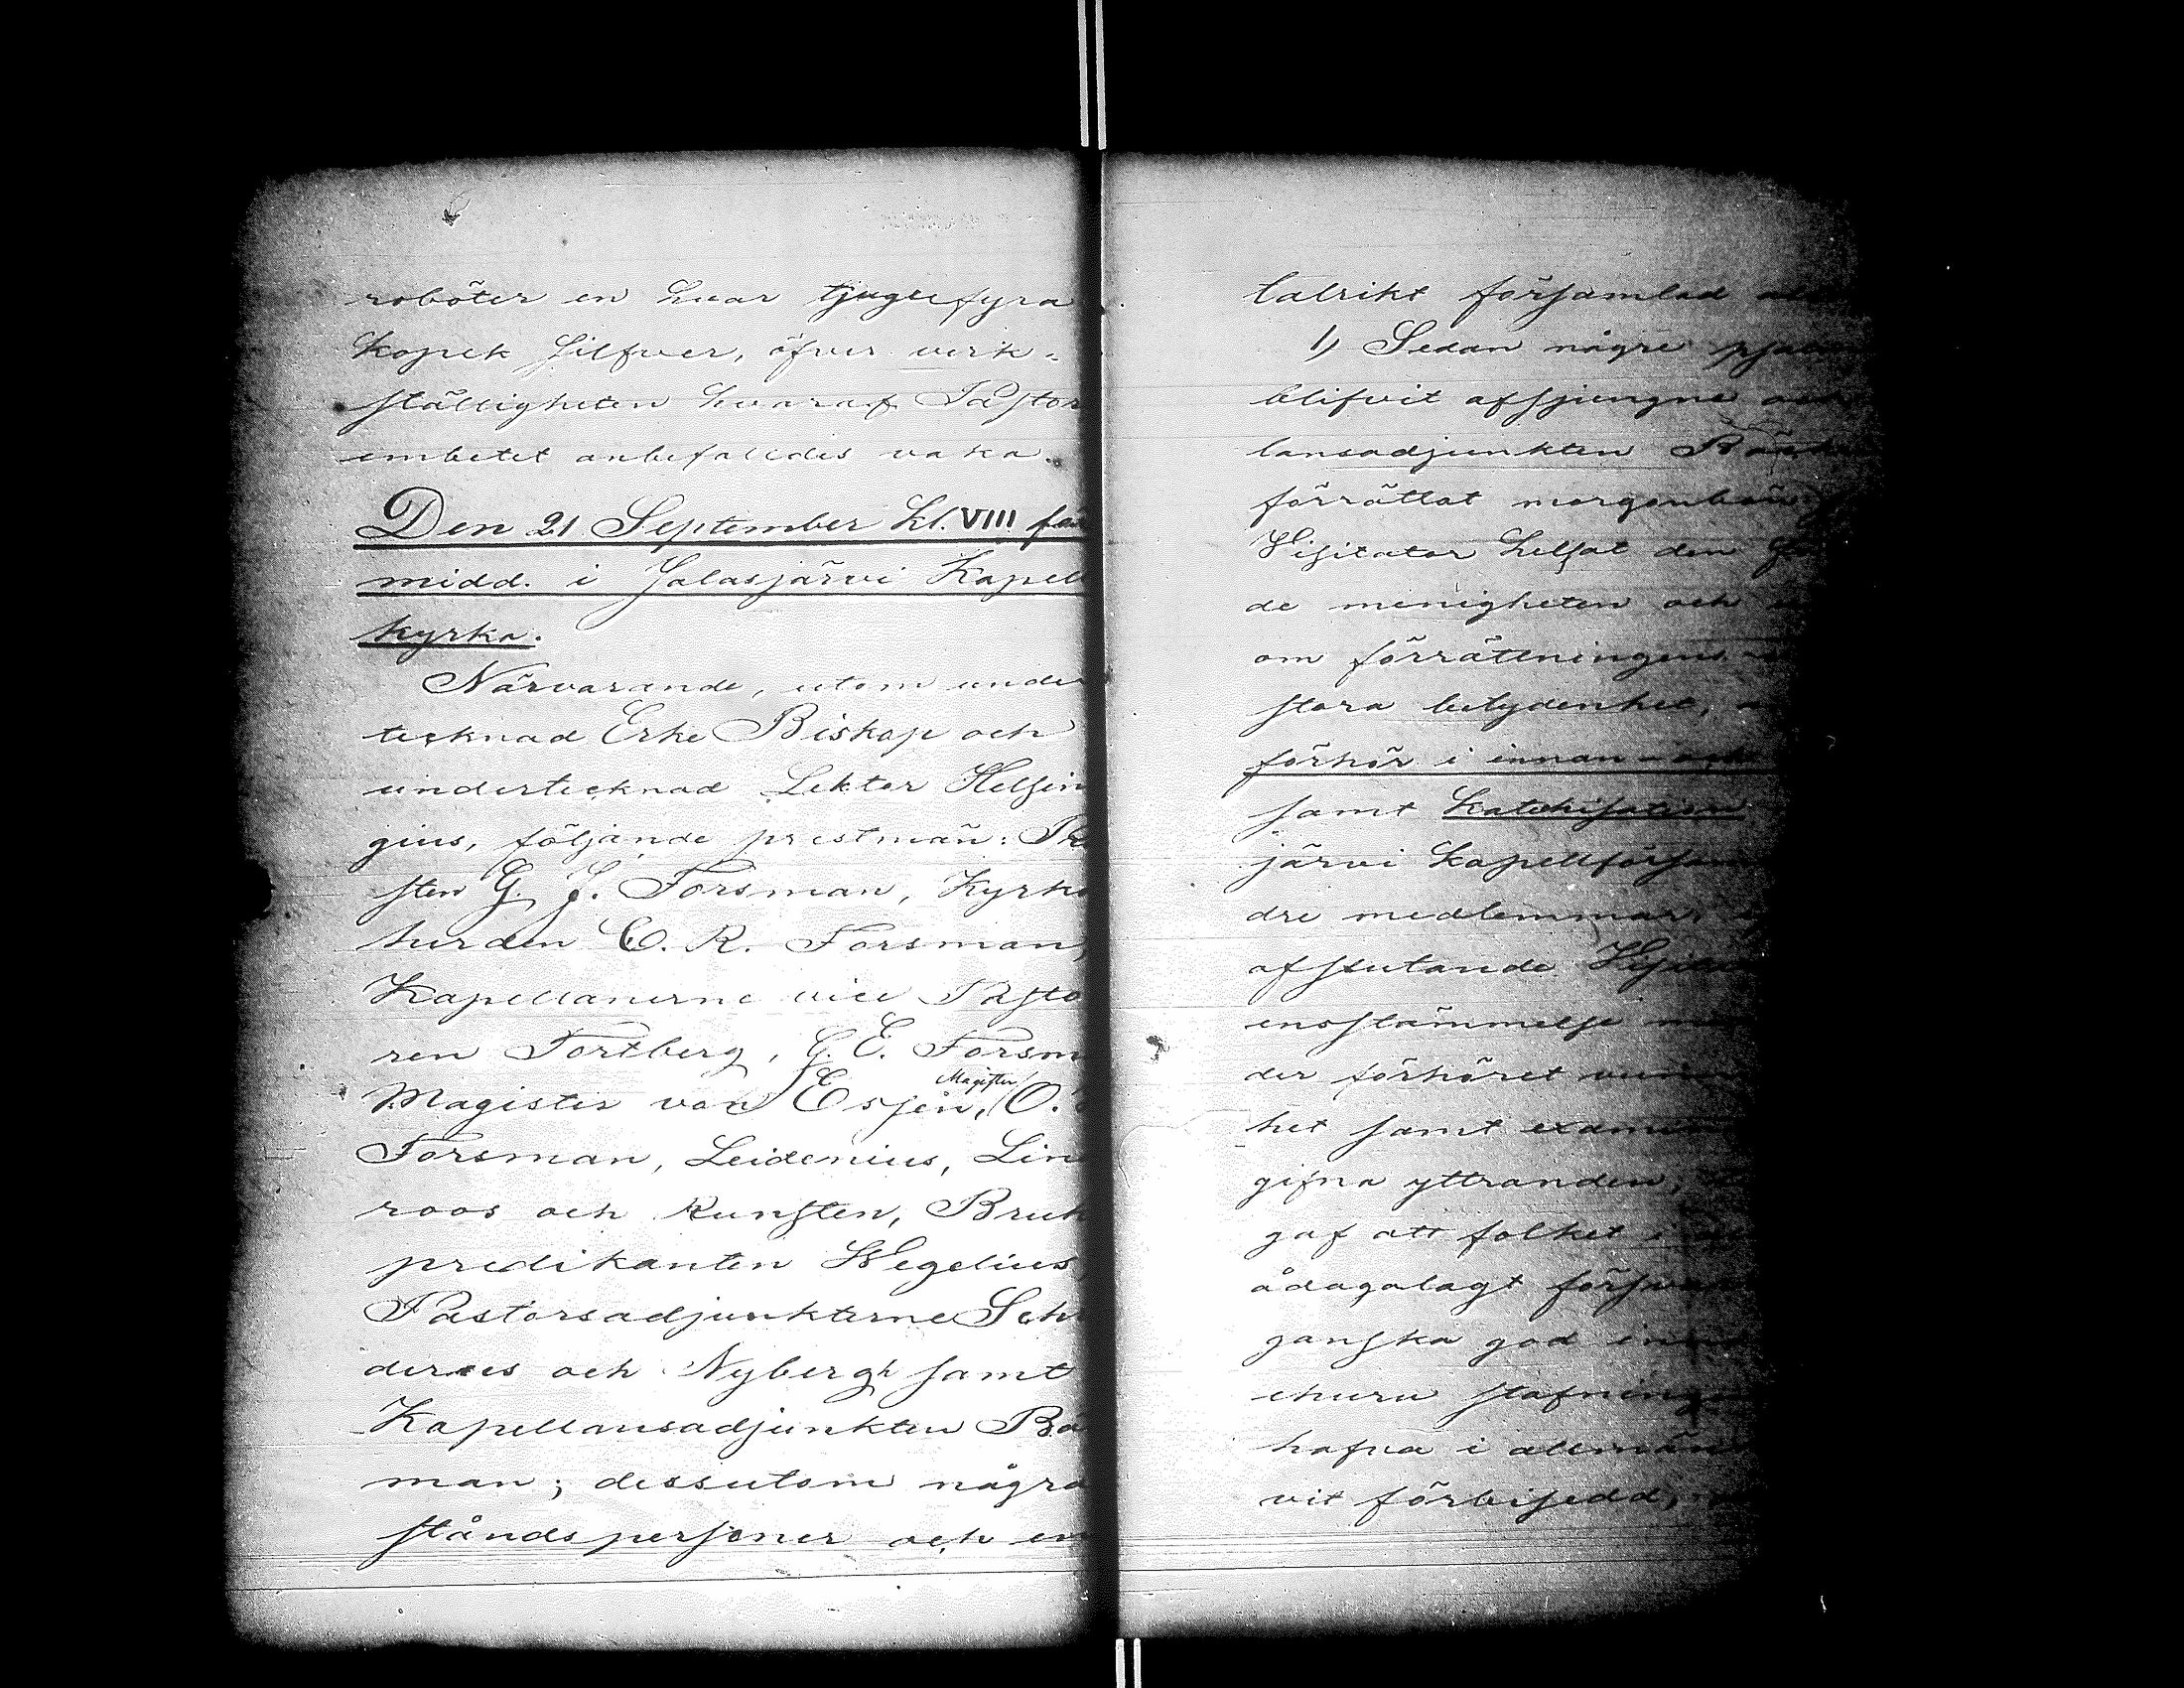 roböter en hvar tjugufyra
Kopek silfver, öfver verk-
ställigheten hvaraf Pastors
embetet anbefalldes vaka.
Den 21 September kl. VIII för
midd. i Jalasjärvi Kapell
kyrka.
Närvarande, utom under
tecknad Erke Biskop och
undertecknad Lektor Helsin
gius, följande prestmän: Pro
sten G. J. Forsman, Kyrko
herden E. R. Forsman,
Kapellanerne vice Pasto
ren Tortberg, G. E. Forsm
Magister von Essen, Magister O.
Forsman, Leidenius, Lin
roos och Kunsten, Bruks
predikanten Wegelius,
Pastorsadjunkterne
och Nybergh samt
Kapellansadjunkten Bä
man; dessutom några
ståndspersoner och en
talrikt församlad
1) Sedan några psalm
blifvit afsjungne och
lansadjunkten
förrättat morgonbön
Visitator helsat den
de menigheten och
om förrättningens
stora betydenhet,
förhör i innan-
samt Katekisation
järvi Kapellförsam
dre medlemmar
afslutande
ensstämmelse med
der förhöret
het samt
gifna yttranden,
gaf att folket i
ådagalagt försva
ganska god inn
ehuru stafning
hafva i allmän
vit förbisedd,